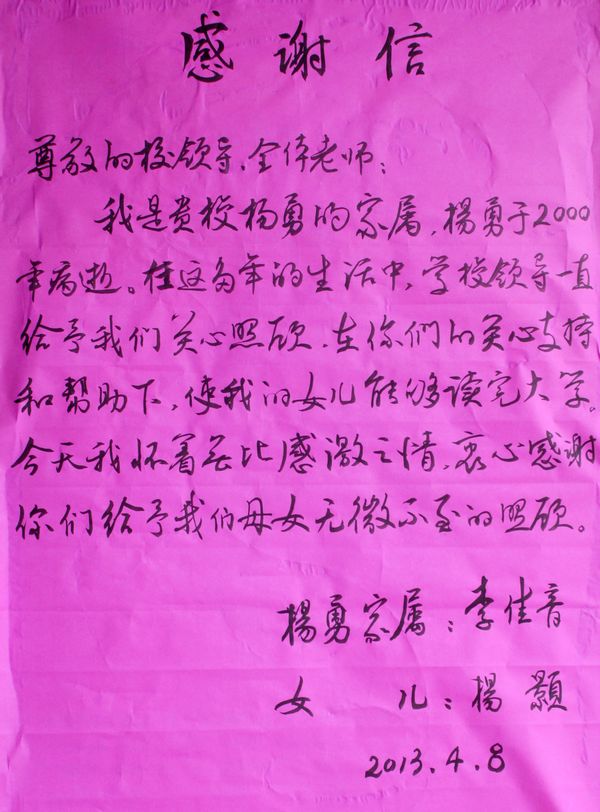 感谢信
尊敬的校领导、全体老师：
我是贵校杨勇的家属，楊勇于2000
年病逝。在这多年的生活中，学校领导一直
给予我们关心照顾，在你们的关心支持
和帮助下，使我的女儿能够读完大学。
今天我怀着无比感激之情，衷心感谢
你们给予我们母女无微不至的照顾。
楊勇家属：李佳音
女 儿：楊颢
2013.4.8